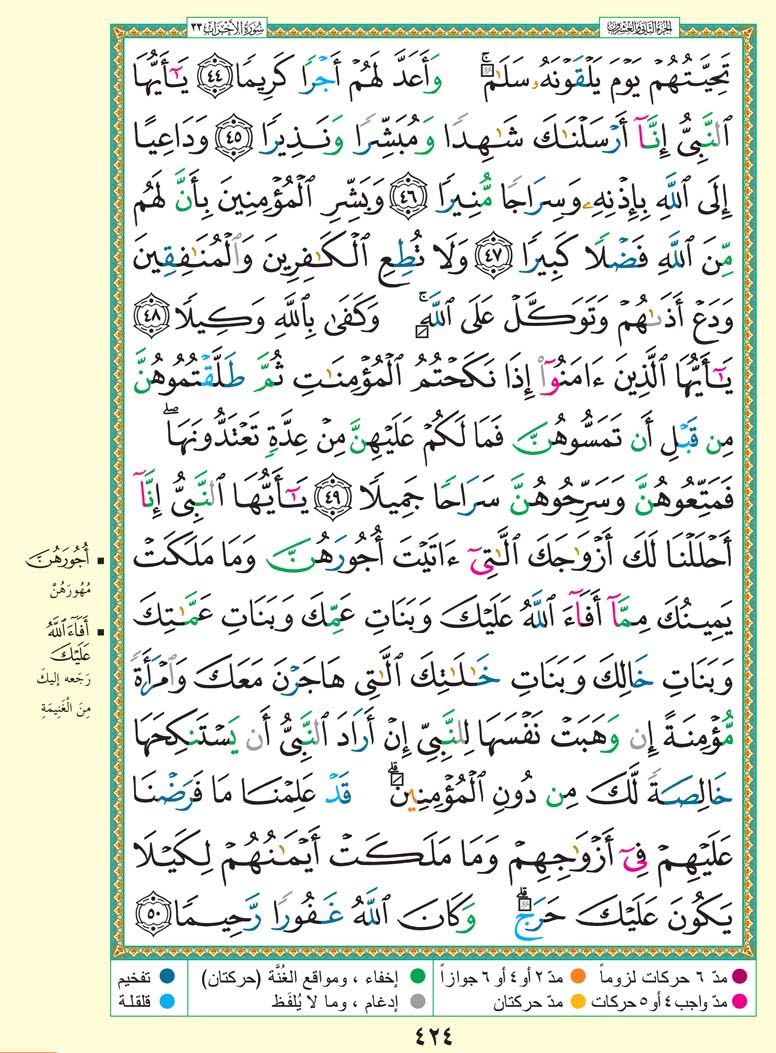 الجزء الثاني والعشرون
سُورَةُ الأَحْزَابِ ٣٣
تَحِيَّتُهُمْ يَوْمَ يَلْقَوْنَهُۥ سَلَٰمٌۚ وَأَعَدَّ لَهُمْ أَجْرًا كَرِيمًا ﴿٤٤﴾ يَٰٓأَيُّهَا
ٱلنَّبِىُّ إِنَّآ أَرْسَلْنَٰكَ شَٰهِدًا وَمُبَشِّرًا وَنَذِيرًا ﴿٤٥﴾ وَدَاعِيًا
إِلَى ٱللَّهِ بِإِذْنِهِۦ وَسِرَاجًا مُّنِيرًا ﴿٤٦﴾ وَبَشِّرِ ٱلْمُؤْمِنِينَ بِأَنَّ لَهُم
مِّنَ ٱللَّهِ فَضْلًا كَبِيرًا ﴿٤٧﴾ وَلَا تُطِعِ ٱلْكَٰفِرِينَ وَٱلْمُنَٰفِقِينَ
وَدَعْ أَذَىٰهُمْ وَتَوَكَّلْ عَلَى ٱللَّهِۚ وَكَفَىٰ بِٱللَّهِ وَكِيلًا ﴿٤٨﴾
يَٰٓأَيُّهَا ٱلَّذِينَ ءَامَنُوٓا۟ إِذَا نَكَحْتُمُ ٱلْمُؤْمِنَٰتِ ثُمَّ طَلَّقْتُمُوهُنَّ
مِن قَبْلِ أَن تَمَسُّوهُنَّ فَمَا لَكُمْ عَلَيْهِنَّ مِنْ عِدَّةٍ تَعْتَدُّونَهَاۖ
فَمَتِّعُوهُنَّ وَسَرِّحُوهُنَّ سَرَاحًا جَمِيلًا ﴿٤٩﴾ يَٰٓأَيُّهَا ٱلنَّبِىُّ إِنَّآ
أَحْلَلْنَا لَكَ أَزْوَٰجَكَ ٱلَّٰتِىٓ ءَاتَيْتَ أُجُورَهُنَّ وَمَا مَلَكَتْ
يَمِينُكَ مِمَّآ أَفَآءَ ٱللَّهُ عَلَيْكَ وَبَنَاتِ عَمِّكَ وَبَنَاتِ عَمَّٰتِكَ
وَبَنَاتِ خَالِكَ وَبَنَاتِ خَٰلَٰتِكَ ٱلَّٰتِى هَاجَرْنَ مَعَكَ وَٱمْرَأَةً
مُّؤْمِنَةً إِن وَهَبَتْ نَفْسَهَا لِلنَّبِىِّ إِنْ أَرَادَ ٱلنَّبِىُّ أَن يَسْتَنكِحَهَا
خَالِصَةً لَّكَ مِن دُونِ ٱلْمُؤْمِنِينَۗ قَدْ عَلِمْنَا مَا فَرَضْنَا
عَلَيْهِمْ فِىٓ أَزْوَٰجِهِمْ وَمَا مَلَكَتْ أَيْمَٰنُهُمْ لِكَيْلَا
يَكُونَ عَلَيْكَ حَرَجٌۗ وَكَانَ ٱللَّهُ غَفُورًا رَّحِيمًا ﴿٥٠﴾
أُجُورَهُنَّ
مُهُورَهُنَّ
أَفَآءَ ٱللَّهُ
عَلَيْكَ
رَجَعه إليكَ
مِنَ الْغَنِيمَةِ
مدّ ٦ حركات لزوماً
مدّ ٢ أو ٤ أو ٦ جوازاً
إخفاء ، ومواقع الغُنَّة (حركتان)
تفخيم
مدّ واجب ٤ أو ٥ حركات
مدّ حركتان
إدغام ، وما لا يُلفَظ
قلقلة
٤٢٤